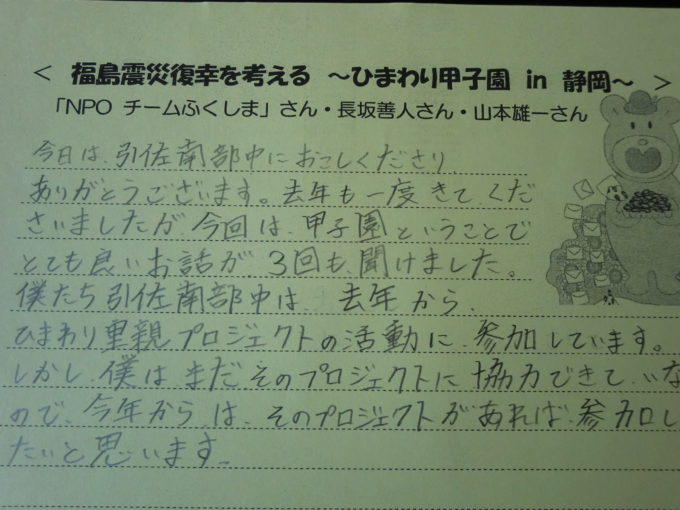 ＜ 福島震災復幸を考える ～ひまわり甲子園 in 静岡～ ＞
「NPO チームふくしま」さん・長坂善人さん・山本雄一さん
今日は、引佐南部中におこしくださり、
ありがとうございます。去年も一度きてくだ
さいましたが、今回は、甲子園ということで
とても良いお話が、3回も、聞けました。
僕たち引佐南部中は、去年から、
ひまわり里親プロジェクトの活動に、参加しています。
しかし、僕はまだそのプロジェクトに協力できていな
ので、今年からは、そのプロジェクトがあれば、参加し
たいと思います。